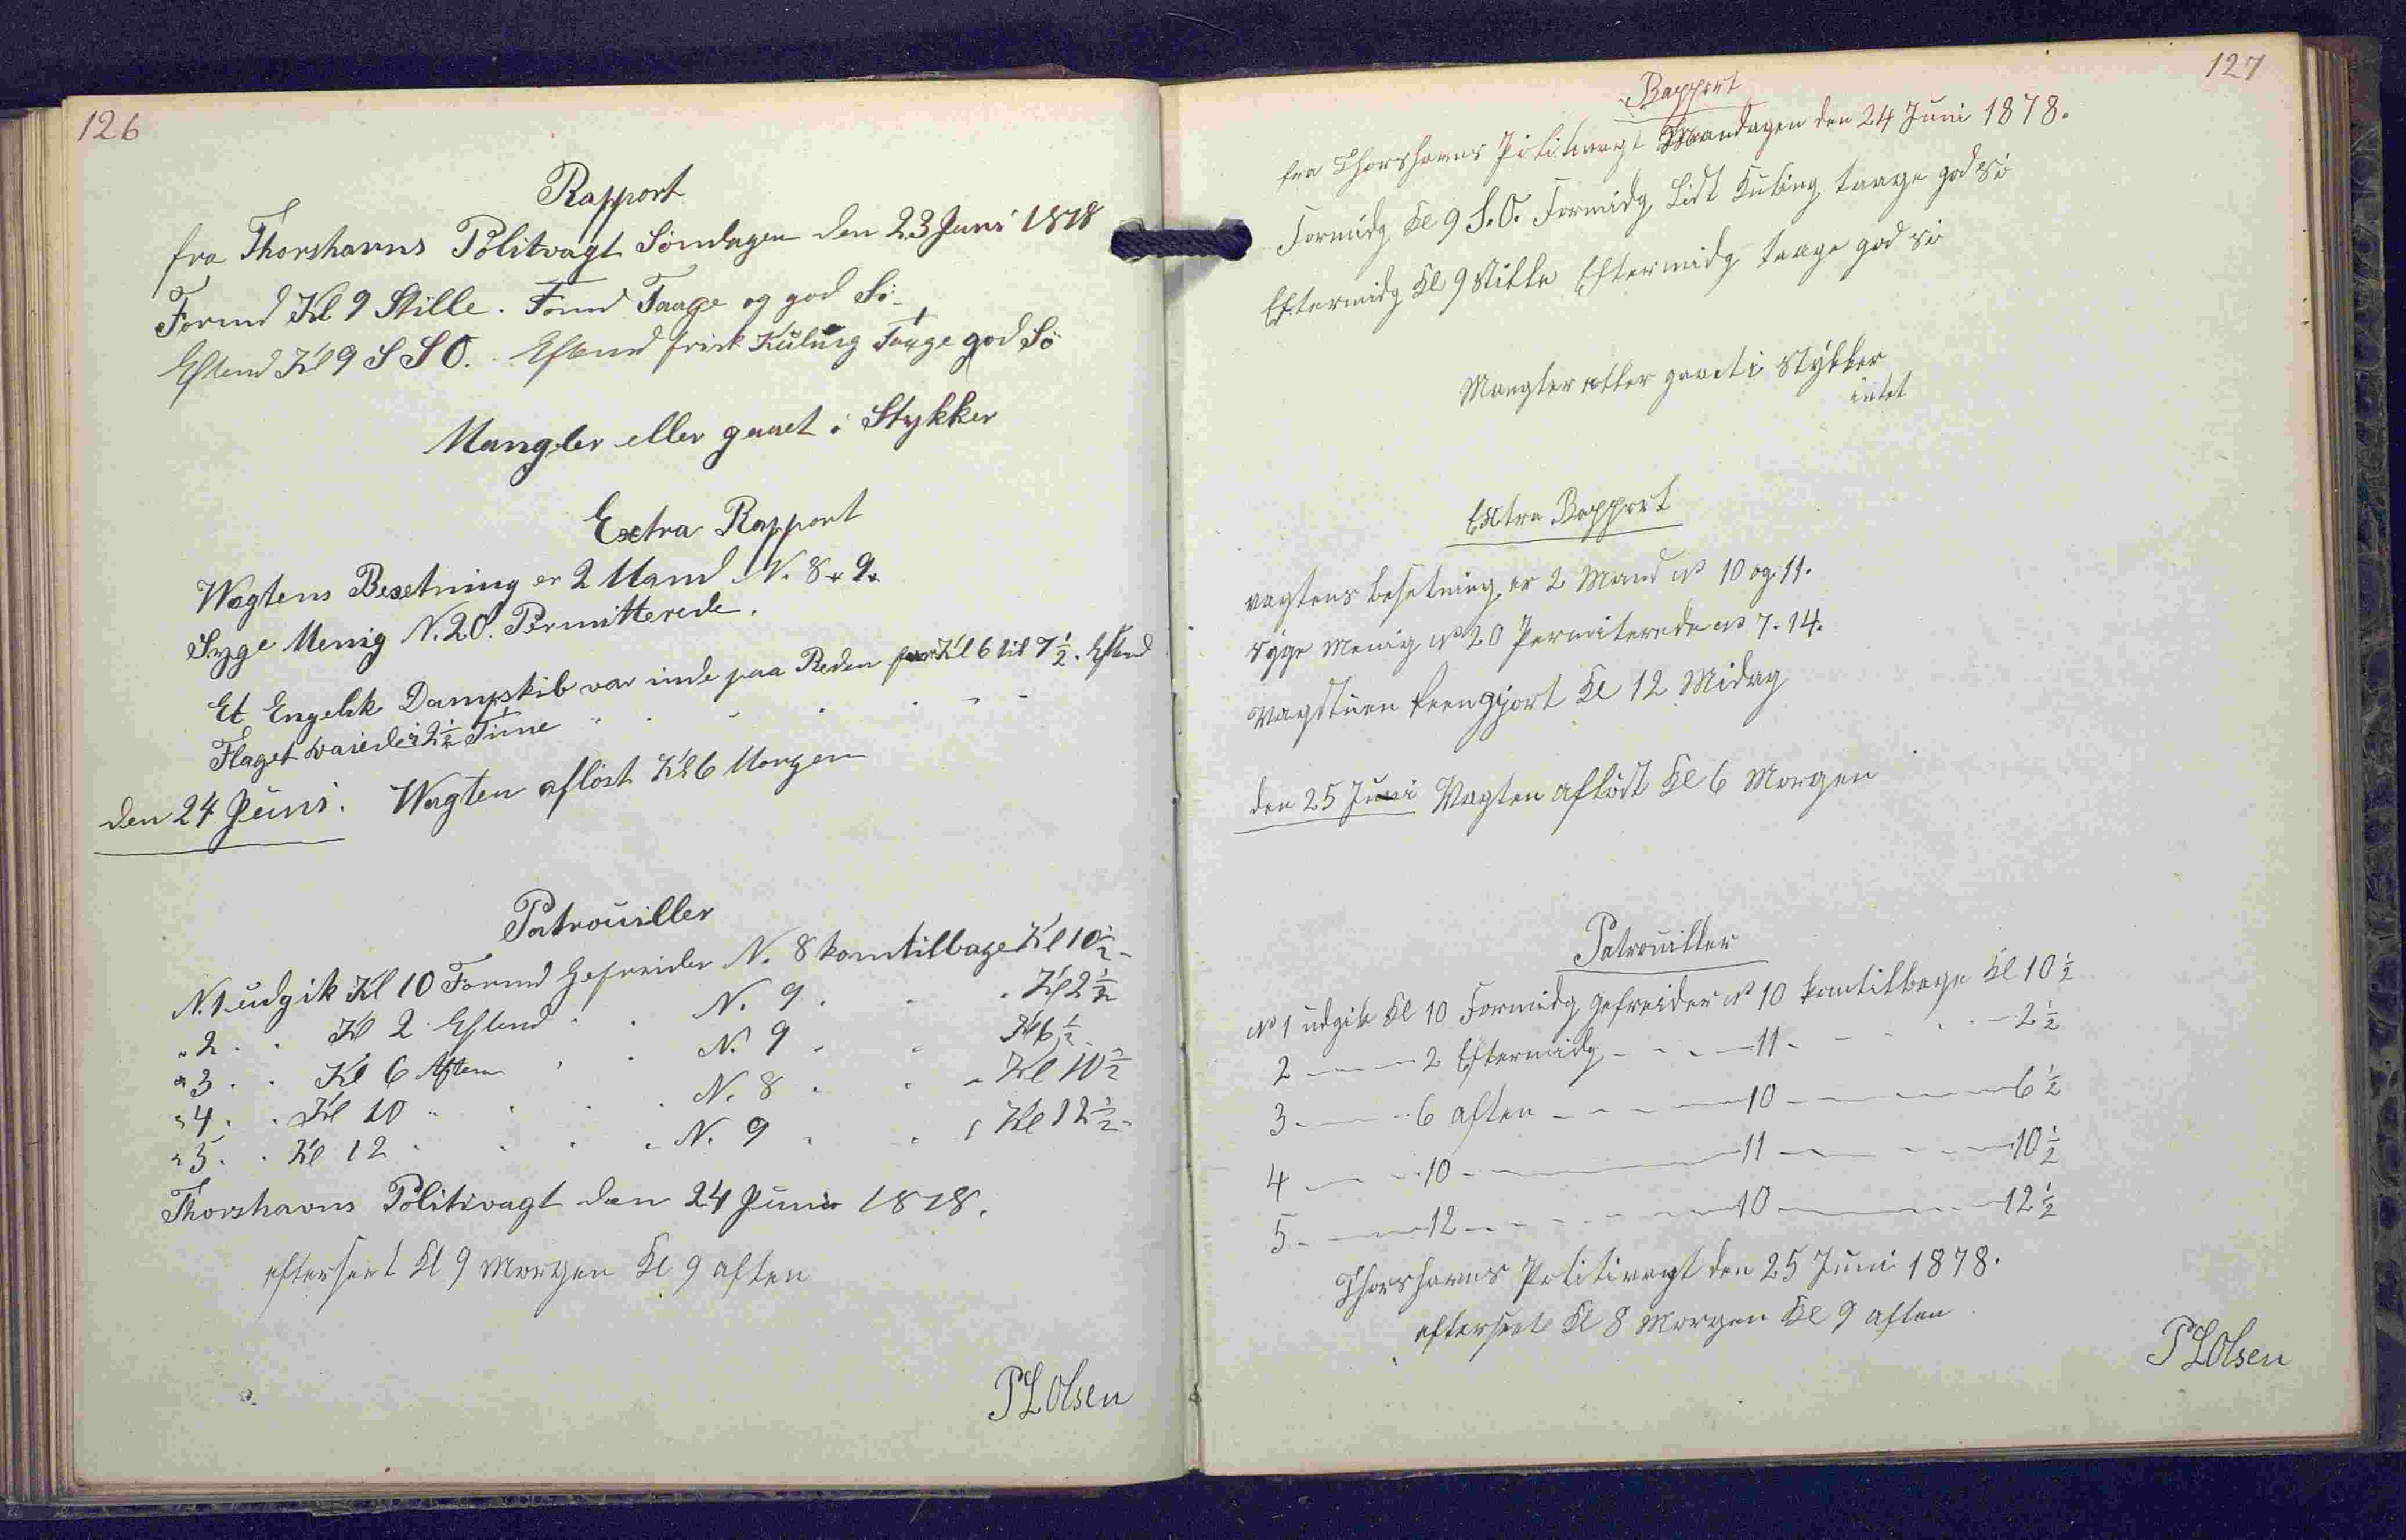 126
Rapport
fra Thorshavns Politvagt Søndagen den 23 Juni 1878
Formd Kl 9 Stille. Formd Taage og god Sø
Eftemd Kl 9 S S O. Eftemd frisk Kuling Taage god Sø
Mangler eller gaaet i Stykker
Extra Rapport
Wagtens Besetning er 2 Mand N. 8 & 9.
Syge Menig N. 20. Permitterede.
Et Engelsk Dampskib var inde paa Reden fra Kl 6 til 7½. Eftemd
Flaget vaiede i 2½ Time
den 24 Juni. Wagten afløst Kl 6 Morgen
Patrouiller
N. 1 udgik Kl 10 Formd Gefreider N. 8 kom tilbage Kl 10½
" 2 . . Kl 2 Eftemd . . N. 9 . . . Kl 2½
" 3 . . Kl 6 Aften . . N. 9 . . Kl 6½
" 4 . . Kl 10 " . . . N. 8 . . " Kl 10½
" 5 . . Kl 12 . . . . N. 9 . . . Kl 12½
Thorshavns Politivagt den 24 Juni 1878.
efterseet Kl 9 Morgen Kl 9 aften
P L Olsen
127
Rapport
fra Thorshavns Politivagt Mandagen den 24 Juni 1878.
Formidg Kl 9 S.O. Formidg Lidt Kuling taage god Sø
Eftermidg Kl 9 Stille Eftermidg taage god Sø
Mangler eller gaaet i Stykker
intet
Extra Rapport
vagtens besetning er 2 Mand No 10 og 11.
Syge Menig No 20 Permiterede No 7. 14.
Vagstuen Reengjort Kl 12 Midag
den 25 Juni Vagten afløst Kl 6 Morgen
Patrouiller
No 1 udgik Kl 10 Formidg gefreider No 10 komtilbage Kl 10½
2 — — 2 Eftermidg - - - 11 - - - - 2½
3 — - 6 aften - - - 10 — — 6½
4 — - 10 — — 11 — - — 10½
5 - — 12 - - - - 10 — - 12½
Thorshavns Politivagt den 25 Juni 1878.
efterseet Kl 8 Morgen Kl 9 aften
P L Olsen